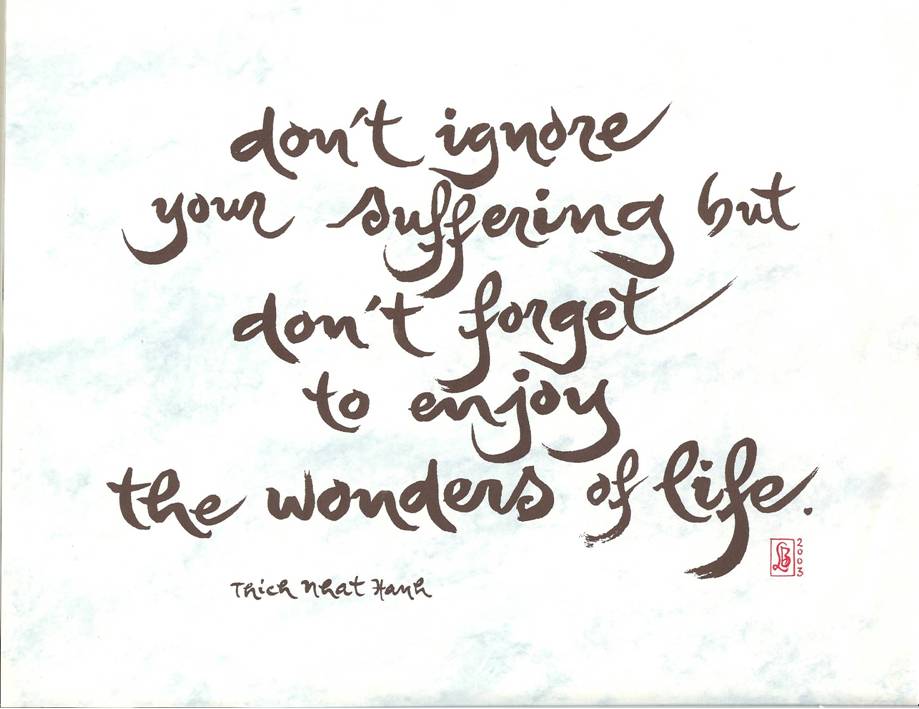 don't ignore
your suffering but
don't forget
to enjoy
the wonders of life.
Thich Nhat Hanh
LB
2003